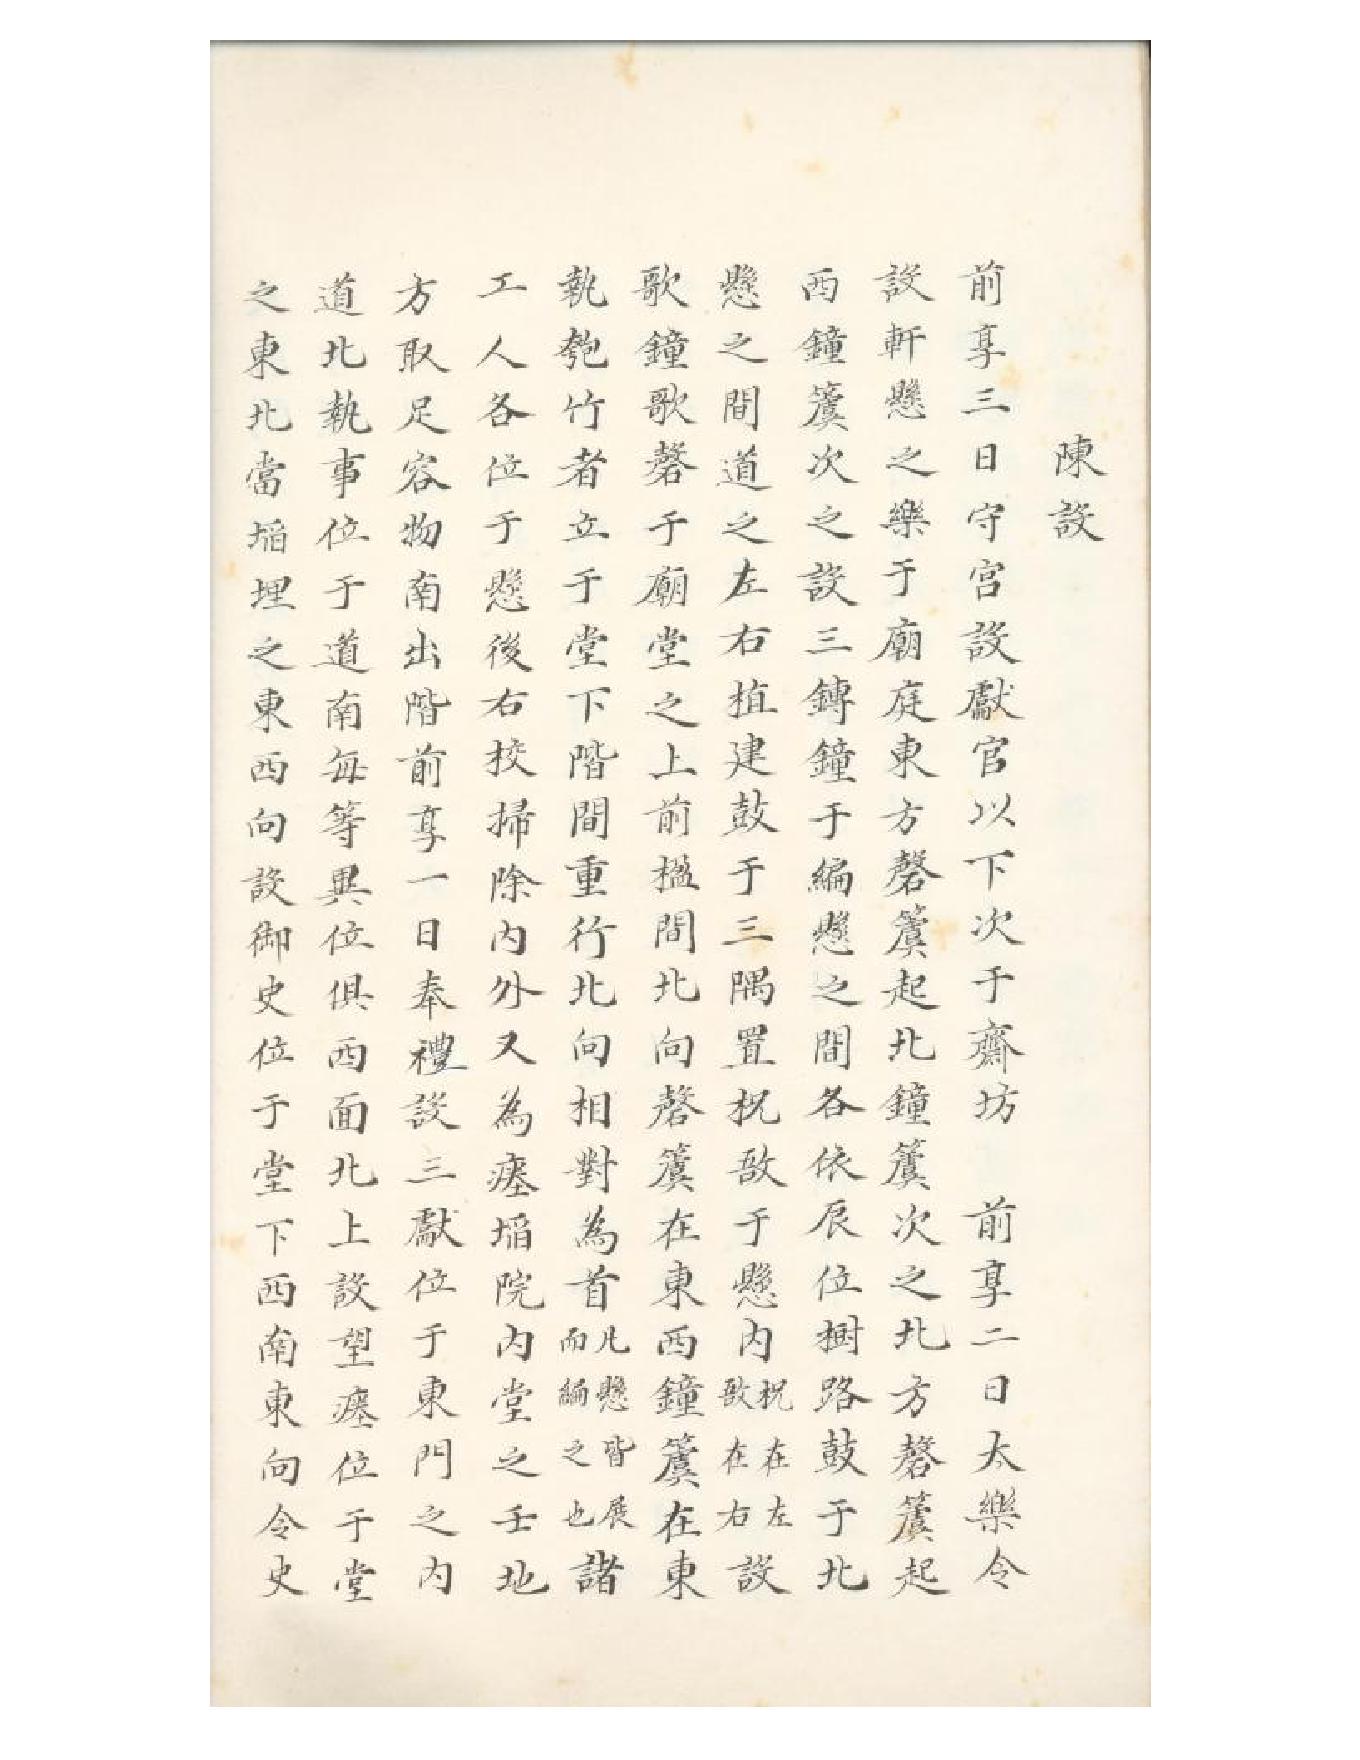 陳設
前享三日守宮設獻官以下次于齋坊　前享二日太樂令
設軒懸之樂于廟庭東方磬簴起北鐘簴次之北方磬簴起
西鐘簴次之設三鎛鐘于編懸之間各依辰位樹路鼓于北
懸之間道之左右植建鼓于三隅置柷敔于懸內柷在左敔在右設
歌鐘歌磬于廟堂之上前楹間北向磬簴在東西鐘簴在東
執匏竹者立于堂下階間重行北向相對為首凡懸皆展而編之也諸
工人各位于懸後右校掃除內外又為瘞埳院內堂之壬地
方取足容物南出階前享一日奉禮設三獻位于東門之內
道北執事位于道南每等異位俱西面北上設望瘞位于堂
之東北當埳埋之東西向設御史位于堂下西南東向令史